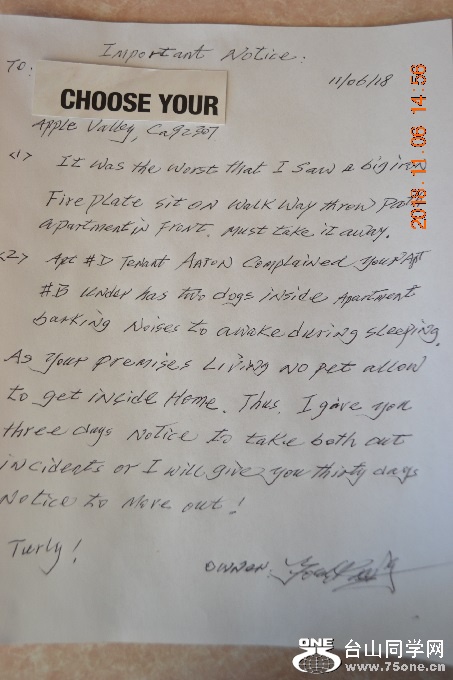 Important Notice:
TO:
11/06/18
CHOOSE YOUR
Apple Valley, Ca92307
<1> It was the worst that I saw a big iron
Fire plate sit on walk way throw
apartment in Front. Must take it away.
<2> Apt #D Tenant Anton Complained your Apt
#B under has two dogs inside apartment
barking noises to awake during sleeping.
As your premises Living no pet allow
to get inside Home. Thus. I gave you
three days notice to take both out
incidents or I will give you thirty days
Notice to Move out!
Turly!
OWNER:
2018.11.06 14:56
ONE 台山同学网
www.75one.cn